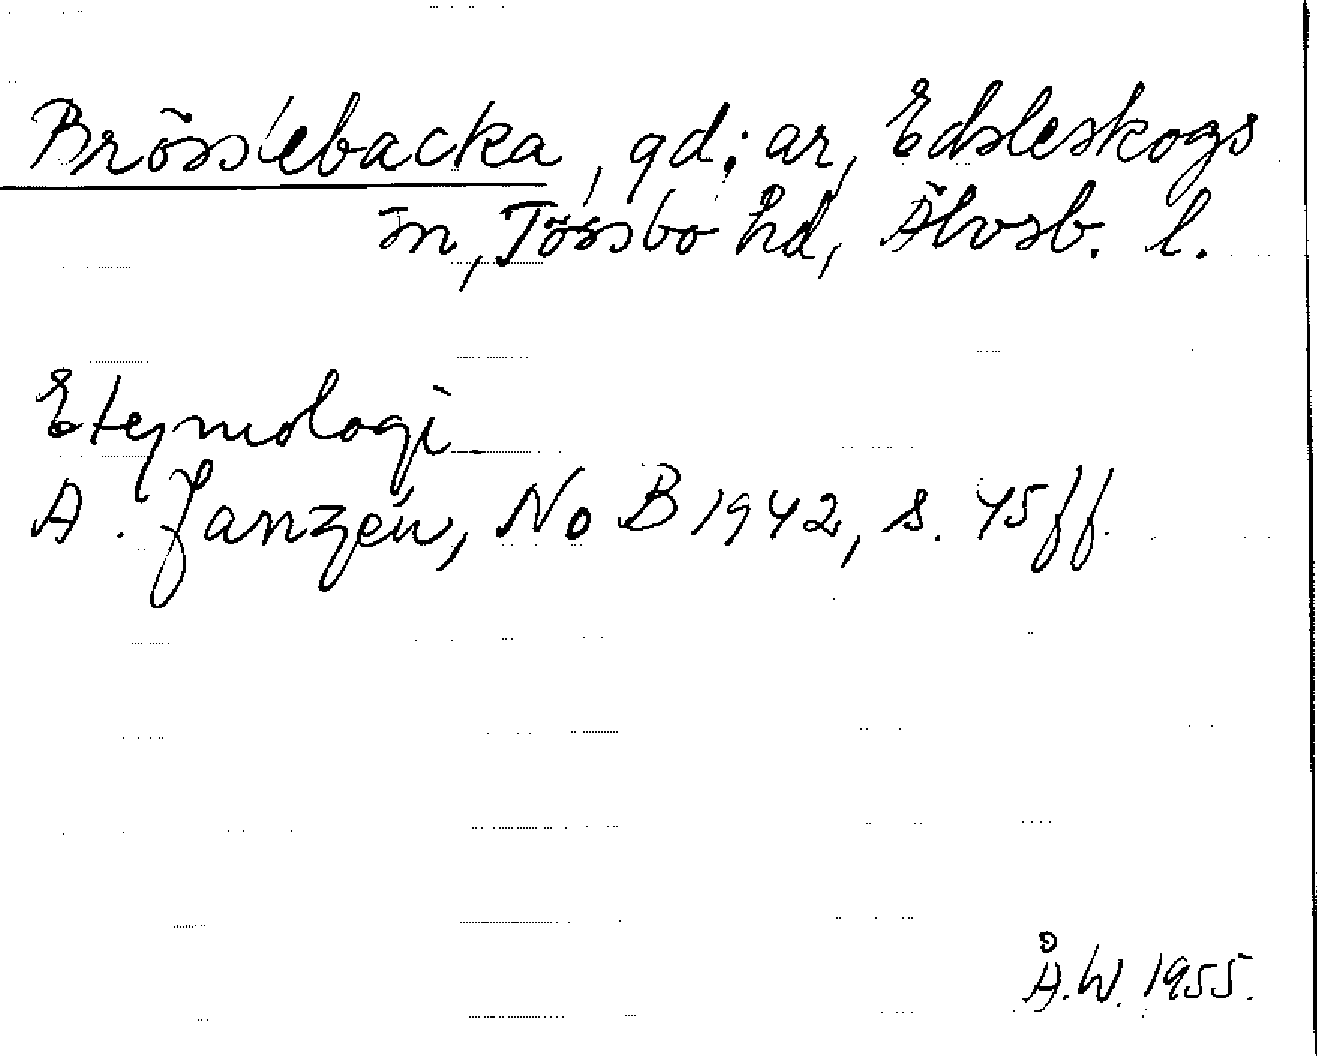 Brösslebacka, gd; ar, Edsleskogs
sn, Tössbo hd, Älvsb. l.
Etymologi
A. Janzén, NoB 1942, s. 45 ff.
Å.W. 1955.